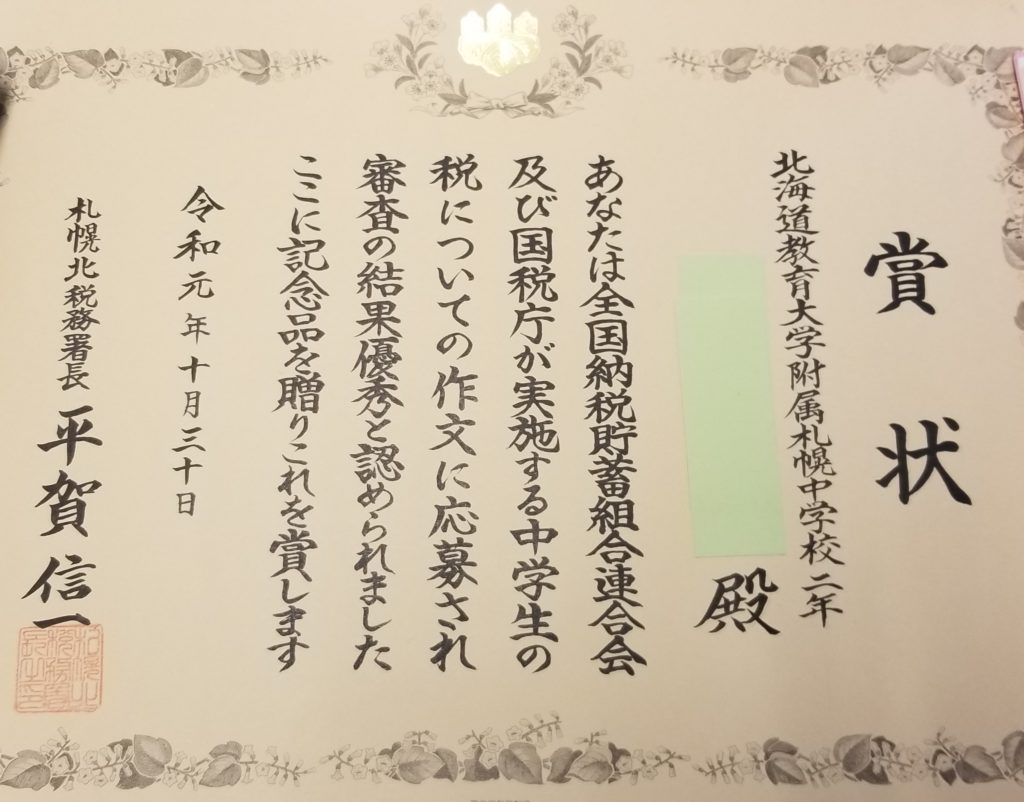 賞状
北海道教育大学附属札幌中学校二年
殿
あなたは全国納税貯蓄組合連合会
及び国税庁が実施する中学生の
税についての作文に応募され
審査の結果優秀と認められました
ここに記念品を贈りこれを賞します
令和元年十月三十日
札幌北税務署長 平賀信一